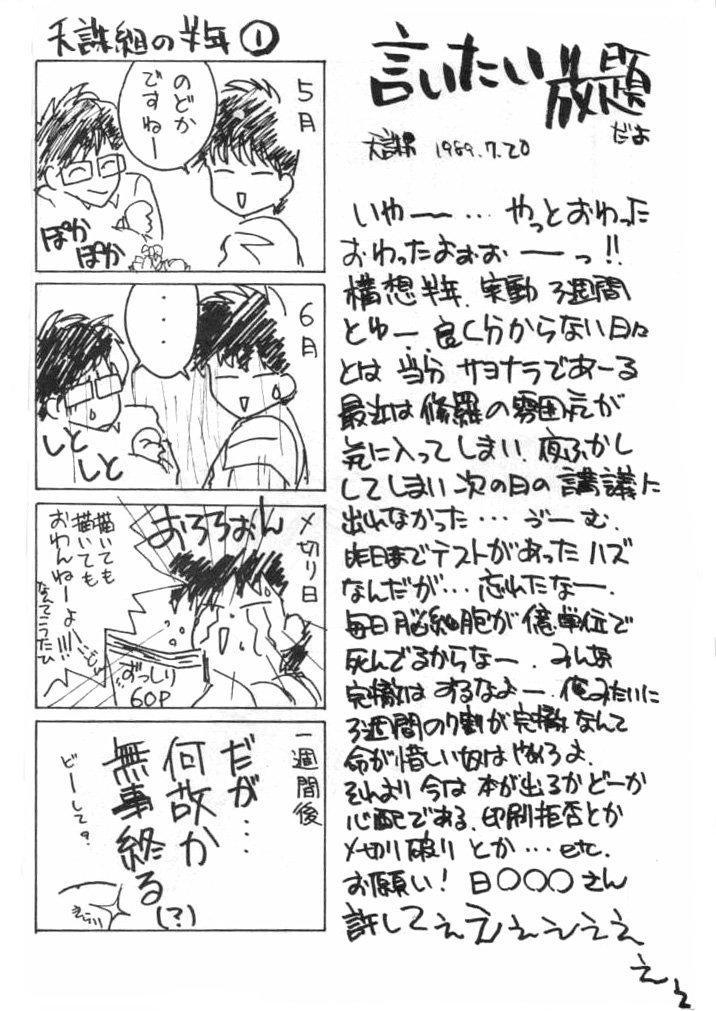 言いたい放題
だよ
天誅組 1989.7.20
いやー… やっとおわった
おわったよぉぉーっ!!
構想半年、実動3週間
とゆー、良く分からない日々
とは当分サヨナラであーる
最近は修羅の雰囲気が
気に入ってしまい、夜ふかし
してしまい次の日の講議に
出れなかった… うーむ、
昨日までテストがあったハズ
なんだが… 忘れたなー、
毎日脳細胞が億単位で
死んでるからなー、みんな
完徹はするなよー、俺みたいに
3週間の7割が完徹なんて
命が惜しい奴はやめろよ、
それより今は本が出るかどーか
心配である、印刷拒否とか
〆切り破りとか… etc.
お願い! 日○○○さん
許してぇえぇぇぇぇぇ
ぇぇ
天誅組の半年①
5月
のどか
ですねー
ぽか
ぽか
6月
・・・
しと
しと
〆切り日
おろろぉん
描いても
描いても
おわんねーよ〜!!!
なんてこったい
ずっしり
60P
一週間後
だが…
何故か
無事終る
(?)
どーして?